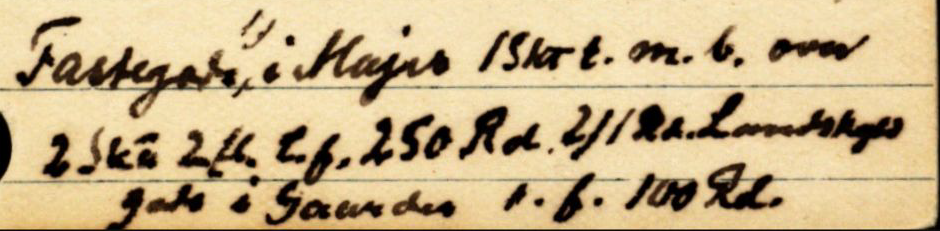 Fæstegods, 1) i Majer 1 Skr t. m. b. over
2 Skr 2 fl. t. f. 250 Rd. 2/1 Rd. Landskyld
gods i Gaarden t. f. 100 Rd.